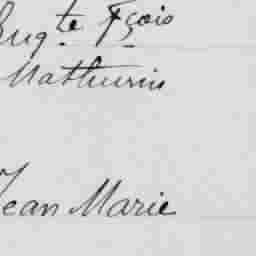 Aug.te Fçois
Mathurin
Jean Marie